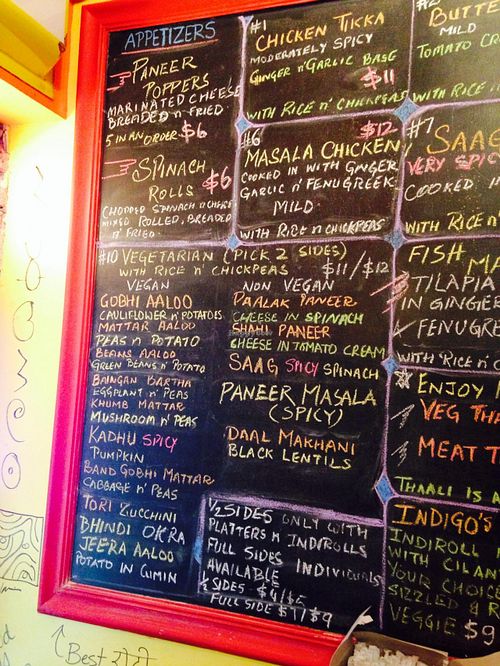 APPETIZERS
PANEER
POPPERS
MARINATED CHEESE
BREADED n' FRIED
5 IN AN ORDER $6
SPINACH
ROLLS $6
CHOPPED SPINACH n' CHEESE
MIXED ROLLED, BREADED
n' FRIED
#1
CHICKEN TIKKA
MODERATELY SPICY
GINGER n' GARLIC BASE
$11
WITH RICE n' CHICKPEAS
BUTTE
MILD
TOMATO CR
WITH RICE n'
#6 $12
MASALA CHICKEN
COOKED IN WITH GINGER
GARLIC n' FENUGREEK
MILD
WITH RICE n' CHICKPEAS
#7
SAAG
VERY SPIC
COOKED IN
WITH RICE n'
#10 VEGETARIAN (PICK 2 SIDES)
WITH RICE n' CHICKPEAS $11/$12
VEGAN
GOBHI AALOO
CAULIFLOWER n' POTATOES
MATTAR AALOO
PEAS n' POTATO
BEANS AALOO
GREEN BEANS n' POTATO
BAINGAN BARTHA
EGGPLANT n' PEAS
KHUMB MATTAR
MUSHROOM n' PEAS
KADHU SPICY
PUMPKIN
BAND GOBHI MATTAR
CABBAGE n' PEAS
TORI ZUCCHINI
BHINDI OKRA
JEERA AALOO
POTATO IN CUMIN
NON VEGAN
PAALAK PANEER
CHEESE IN SPINACH
SHAHI PANEER
CHEESE IN TOMATO CREAM
SAAG SPICY SPINACH
PANEER MASALA
(SPICY)
DAAL MAKHANI
BLACK LENTILS
1/2 SIDES ONLY WITH
PLATTERS n INDIROLLS
FULL SIDES INDIVIDUALS
AVAILABLE
1/2 SIDES $4/$5
FULL SIDE
FISH MA
TILAPIA
IN GINGER
FENUGRE
WITH RICE n' C
ENJOY
VEG THA
MEAT T
THAALI IS A
INDIGO'S
INDIROLL
WITH CILAN
YOUR CHOIC
SIZZLED & R
VEGGIE $9
Best